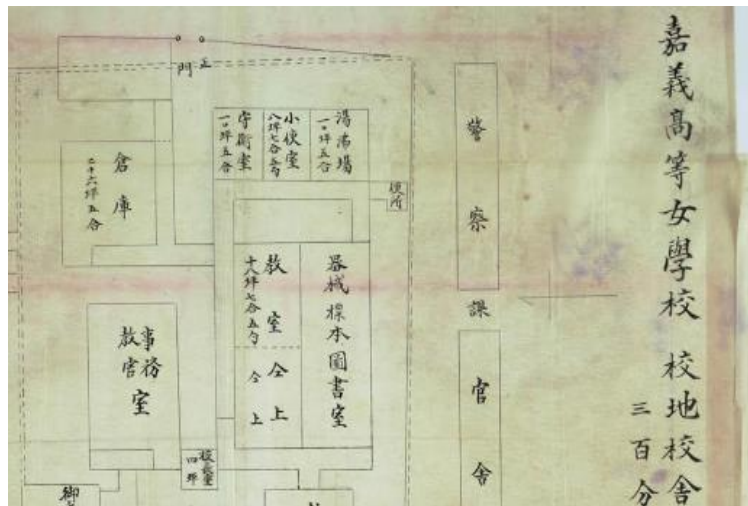 嘉義高等女學校 校地校舍
三百分
警察課官舍
正門
湯沸場
一〇坪五合
小使室
八坪七合五勺
守衛室
一〇坪五合
便所
倉庫
二十六坪五合
器械標本圖書室
教室
十八坪七合五勺
仝上
仝上
事務室
教官
校長室
四坪
御